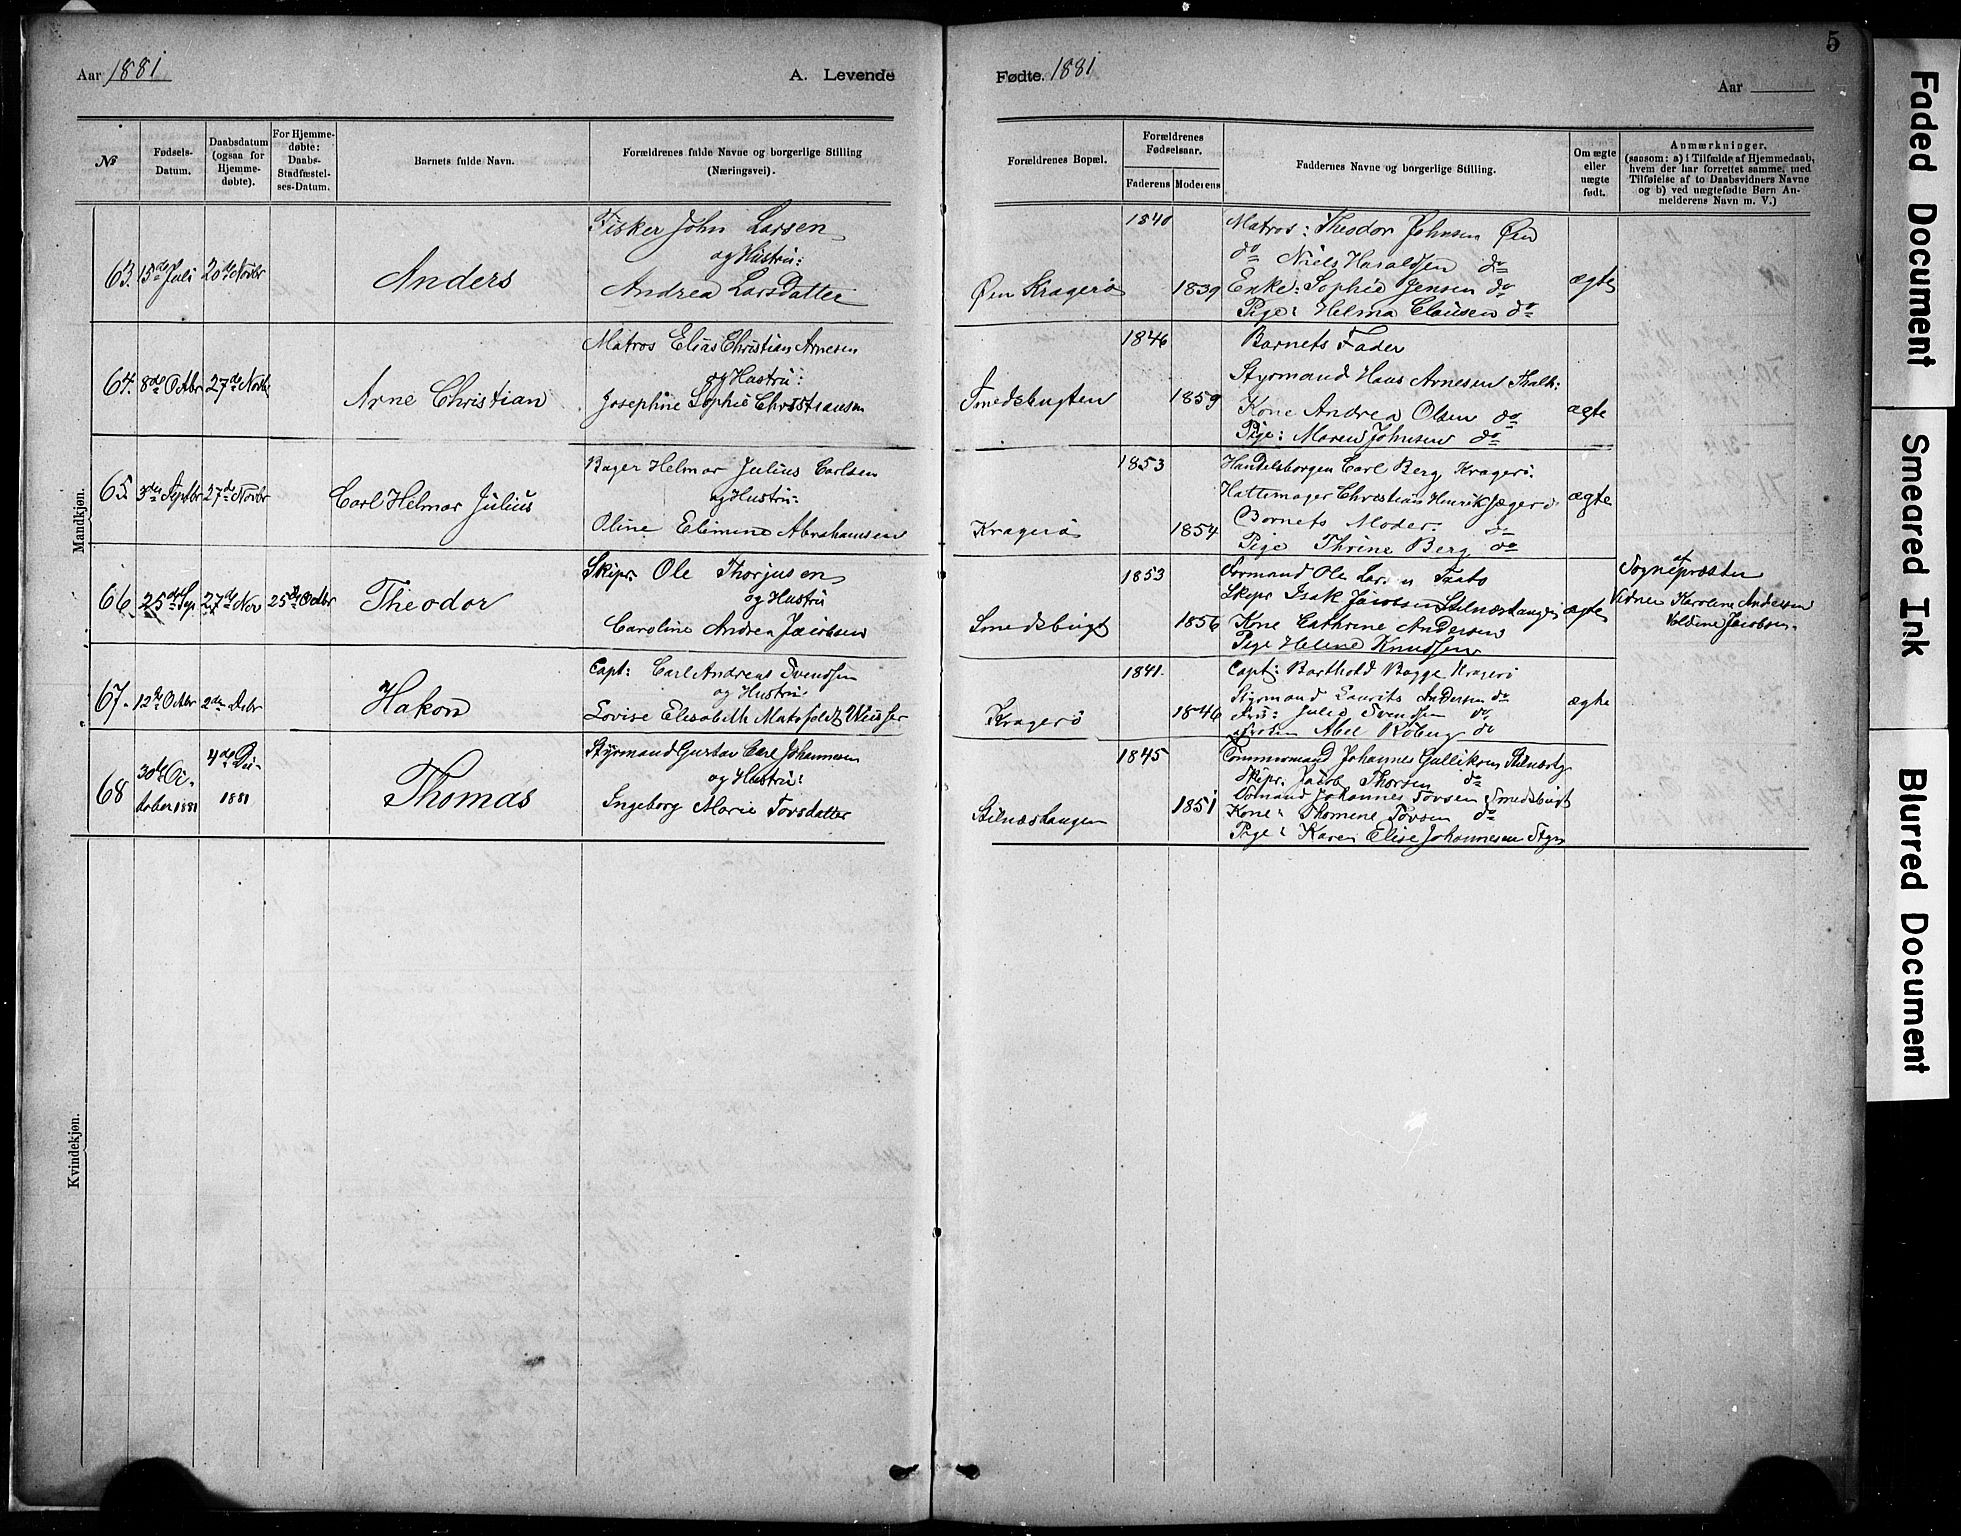 Aar 1881
A. Levende
Fødte. 1881
Aar
5
№
Fødsels-
Datum.
Daabsdatum
(ogsaa for
Hjemme-
døbte).
For Hjemme-
døbte:
Daabs-
Stadfæstel-
ses-Datum.
Barnets fulde Navn.
Forældrenes fulde Navne og borgerlige Stilling
(Næringsvei).
Forældrenes Bopæl.
Forældrenes
Fødselsaar.
Faderens
Moderens
Faddernes Navne og borgerlige Stilling.
Om ægte
eller
uægte
født.
Anmærkninger.
(saasom: a) i Tilfælde af Hjemmedaab,
hvem der har forrettet samme, med
Tilføielse af to Daabsvidners Navne
og b) ved uægtefødte Børn An-
melderens Navn m. V.)
Mandkjøn.
63. 15de Juli 20de Novbr
Anders
Fisker John Larsen
og Hustru:
Andrea Larsdatter
Øen Kragerø
1840
1839
Matros: Theodor Johnsen Øen
do Niels Haraldsen do
Enke: Sophie Jensen do
Pige: Helma Clausen do
ægte
64. 8de Octbr 27de Novbr
Arne Christian
Matros Elias Christian Arnesen
og Hustru:
Josephine Sophie Christiansen
Smedsbugten
1846
1859
Barnets Fader
Styrmand Hans Arnesen
Kone Andrea Olsen do
Pige: Maren Johnsen do
ægte
65. 3die Septbr 27de Novbr
Carl Helmar Julius
Bager Helmar Julius Carlsen
og Hustru:
Oline Elimine Abrahamsen
Kragerø
1853
1854
Handelsborger Carl Berg Kragerø.
Hattemager Christian Henrik Jæger do
Barnets Moder. do
Pige Thrine Berg do
ægte
66. 25de Sep. 27de Nov 25de Octbr
Theodor
Skipr. Ole Thorjusen
og Hustru
Caroline Andrea Jacobsen
Smedsbugt
1853
1856
Formand Ole Larsen Taato
Skipr Isak Jacobsen Stilnæstangen
Kone Cathrine Andersen
Pige Helene Knudsen
ægte
af
Sognepræsten
Vidner Karoline Andersen
Voldine Jacobsen.
67. 12te Octbr 2den Decbr
Hakon
Capt: Carl Andreas Svendsen
og Hustru:
Lovise Elisabeth
Kragerø
1841.
1846
Capt: Barthold Bagge Kragerø
Styrmand Laurits Andersen do
Fru: Julie Svendsen do
Frøken Abel Röberg do
ægte
68 30te Oc-
tober 1881
4de Dec-
1881
Thomas
Styrmand Gustav Carl Johannesen
og Hustru:
Ingeborg Marie Torsdatter
Stilnæstangen
1845
1851
Tømmermand Johannes Gulliksen
Skipr. Jacob Thorsen do
Formand Johannes Tovsen Smedsbugt
Kone: Thomene Tovsen do
Pige: Karen Elise Johannesen
Kvindekjøn.
Faded Document
Smeared Ink
Blurred Document